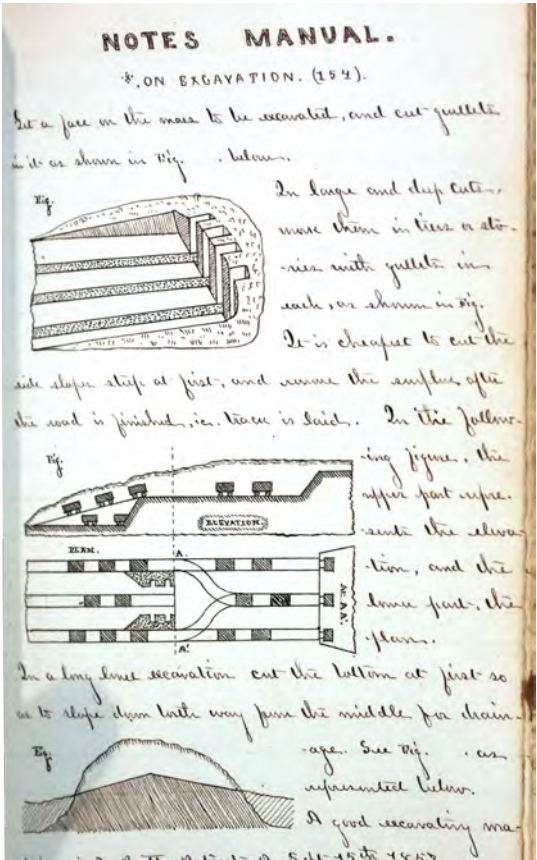 NOTES MANUAL.
ON EXCAVATION. (154).
Let a face on the mass to be excavated, and cut gullets
in it as shown in Fig. . below.
Fig.
In large and deep cuts,
work them in tiers or sto-
-ries with gullets in
each, as shown in Fig.
It is cheapest to cut the
side slopes steep at first, and remove the surplus after
the road is finished, i.e. track is laid. In the follow-
Fig.
-ing figure, the
upper part repre-
-sents the eleva-
-tion, and the
lower part, the
plan.
ELEVATION
PLAN.
A.
A'.
In a long level excavation cut the bottom at first so
as to slope down both way from the middle for drain-
Fig.
-age. See Fig. . as
represented below.
A good excavating ma-
Sept. 15th 1857